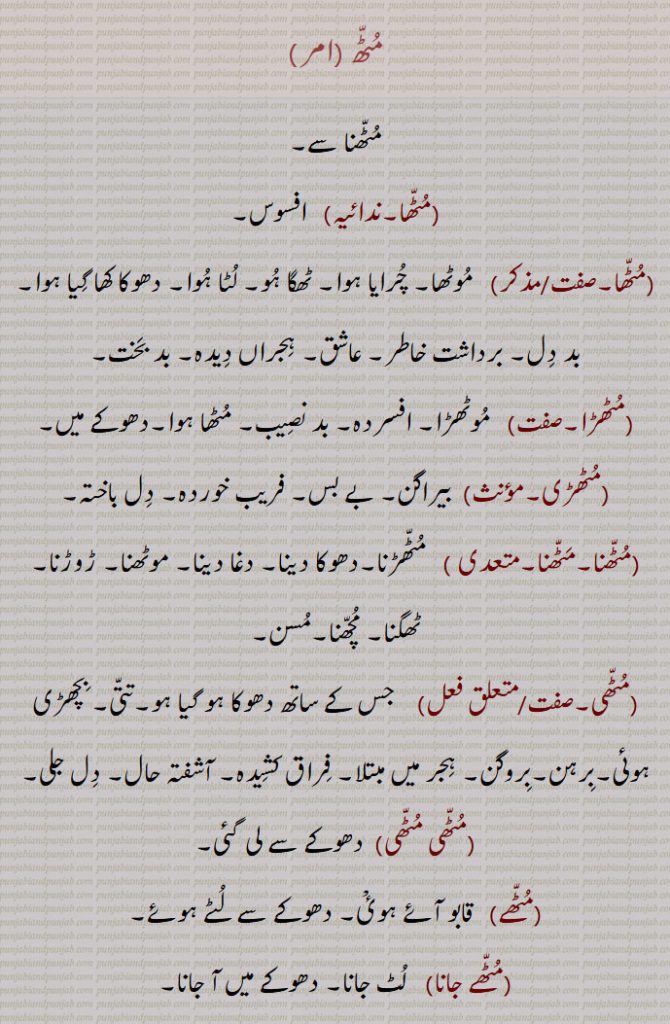 مُٹّھ (امر)
مُٹّھنا سے۔
(مُٹّھا۔ندائیہ) افسوس۔
(مُٹّھا۔صفت/مذکر) مُوٹھا۔ چُرایا ہوا۔ ٹھگا ہُو۔ لُٹا ہُوا۔ دھوکا کھا گِیا ہوا۔
بد دِل۔ برداشت خاطر۔ عاشق۔ ہِجراں دِیدہ۔ بد بَخت۔
(مُٹھڑا۔صفت) مُوٹھڑا۔ افسردہ۔ بد نصِیب۔ مُٹھا ہوا۔ دھوکے میں۔
(مُٹھڑی۔مؤنث) بیراگن۔ بے بس۔ فریب خوردہ۔ دِل باختہ۔
(مُٹّھنا۔مَٹّھنا۔متعدی) مُٹّھڑنا۔دھوکا دینا۔ دغا دینا۔ موٹھنا۔ ڑوڑنا۔
ٹھگنا۔ مُچّھنا۔مُسن۔
(مُٹّھی۔صفت/متعلق فعل) جس کے ساتھ دھوکا ہو گیا ہو۔تتّی۔ بِچھڑی
ہوئی۔بِرہن۔بِروگن۔ ہِجر میں مبتلا۔ فِراق کشِیدہ۔ آشفتہ حال۔ دِل جلی۔
(مُٹّھی مُٹّھی) دھوکے سے لی گئی۔
(مُٹّھے) قابو آئے ہوئے۔ دھوکے سے لُٹے ہوئے۔
(مُٹّھے جانا) لُٹ جانا۔ دھوکے میں آ جانا۔